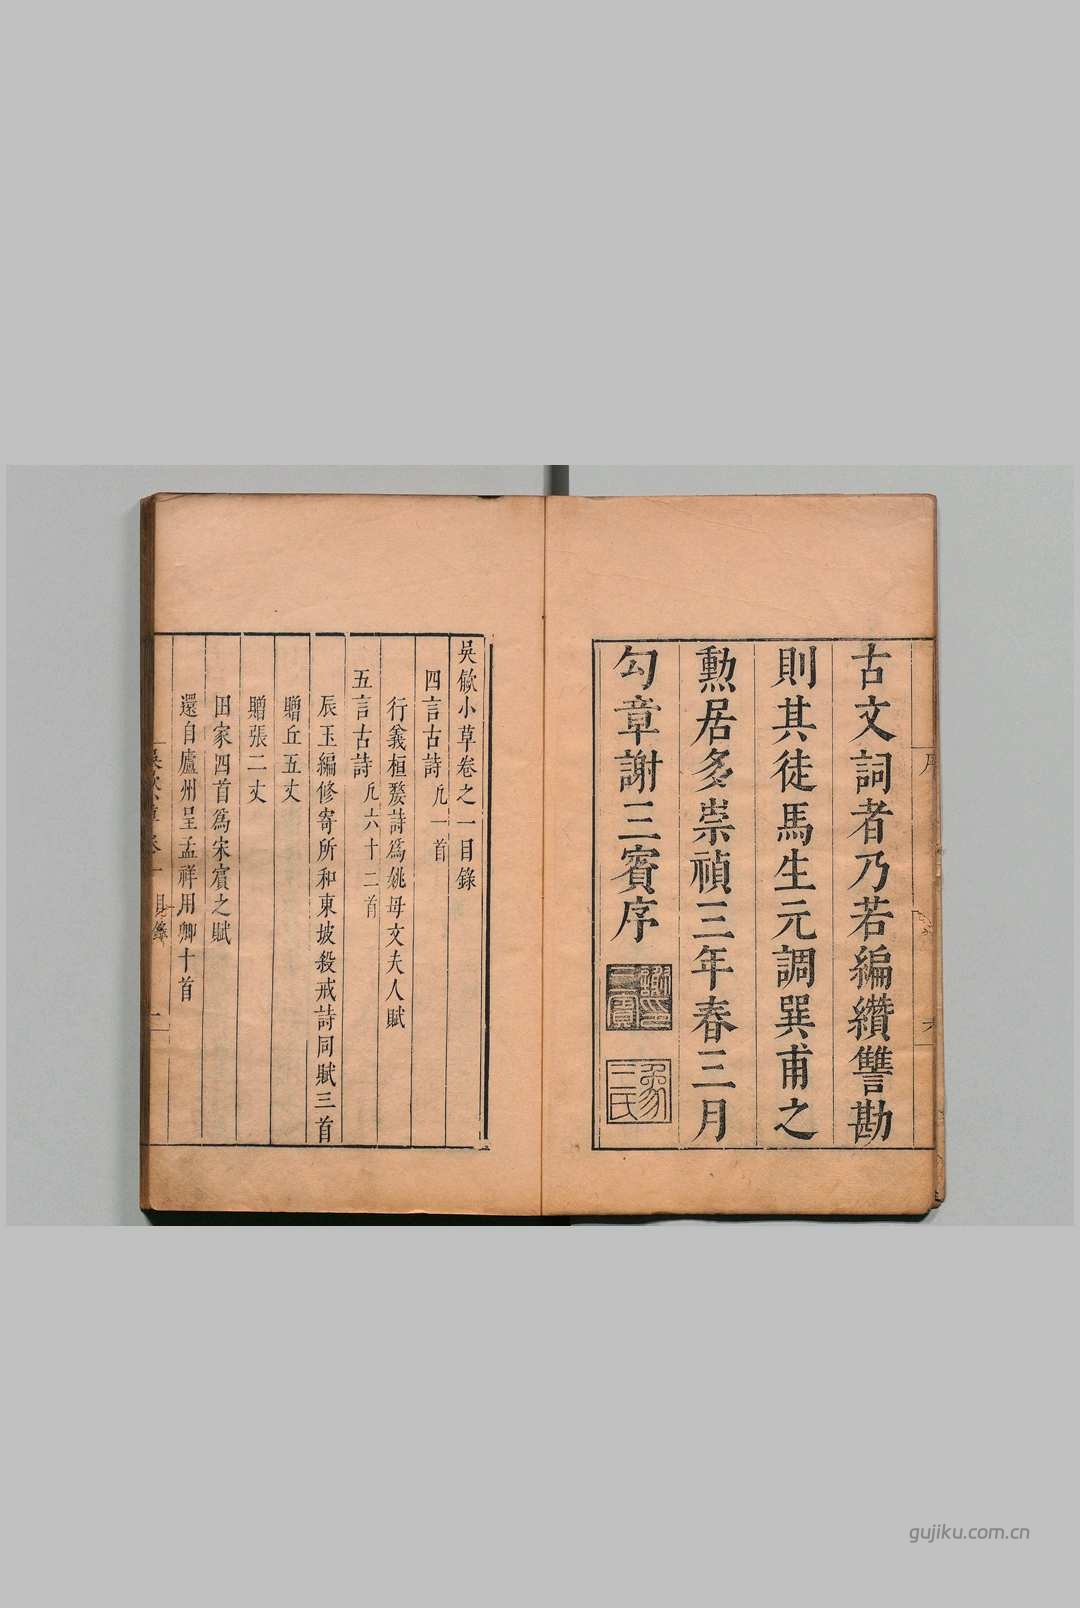 古文詞者乃若編纘讐勘
則其徒馬生元調巽甫之
勲居多崇禎三年春三月
勾章謝三賓序
吳歈小草卷之一目錄
四言古詩凡一首
行義桓嫠詩爲姚母文夫人賦
五言古詩凡六十二首
辰玉編修寄所和東坡殺戒詩同賦三首
贈丘五丈
贈張二丈
田家四首爲宋賓之賦
還自廬州呈孟祥用卿十首
gujiku.com.cn